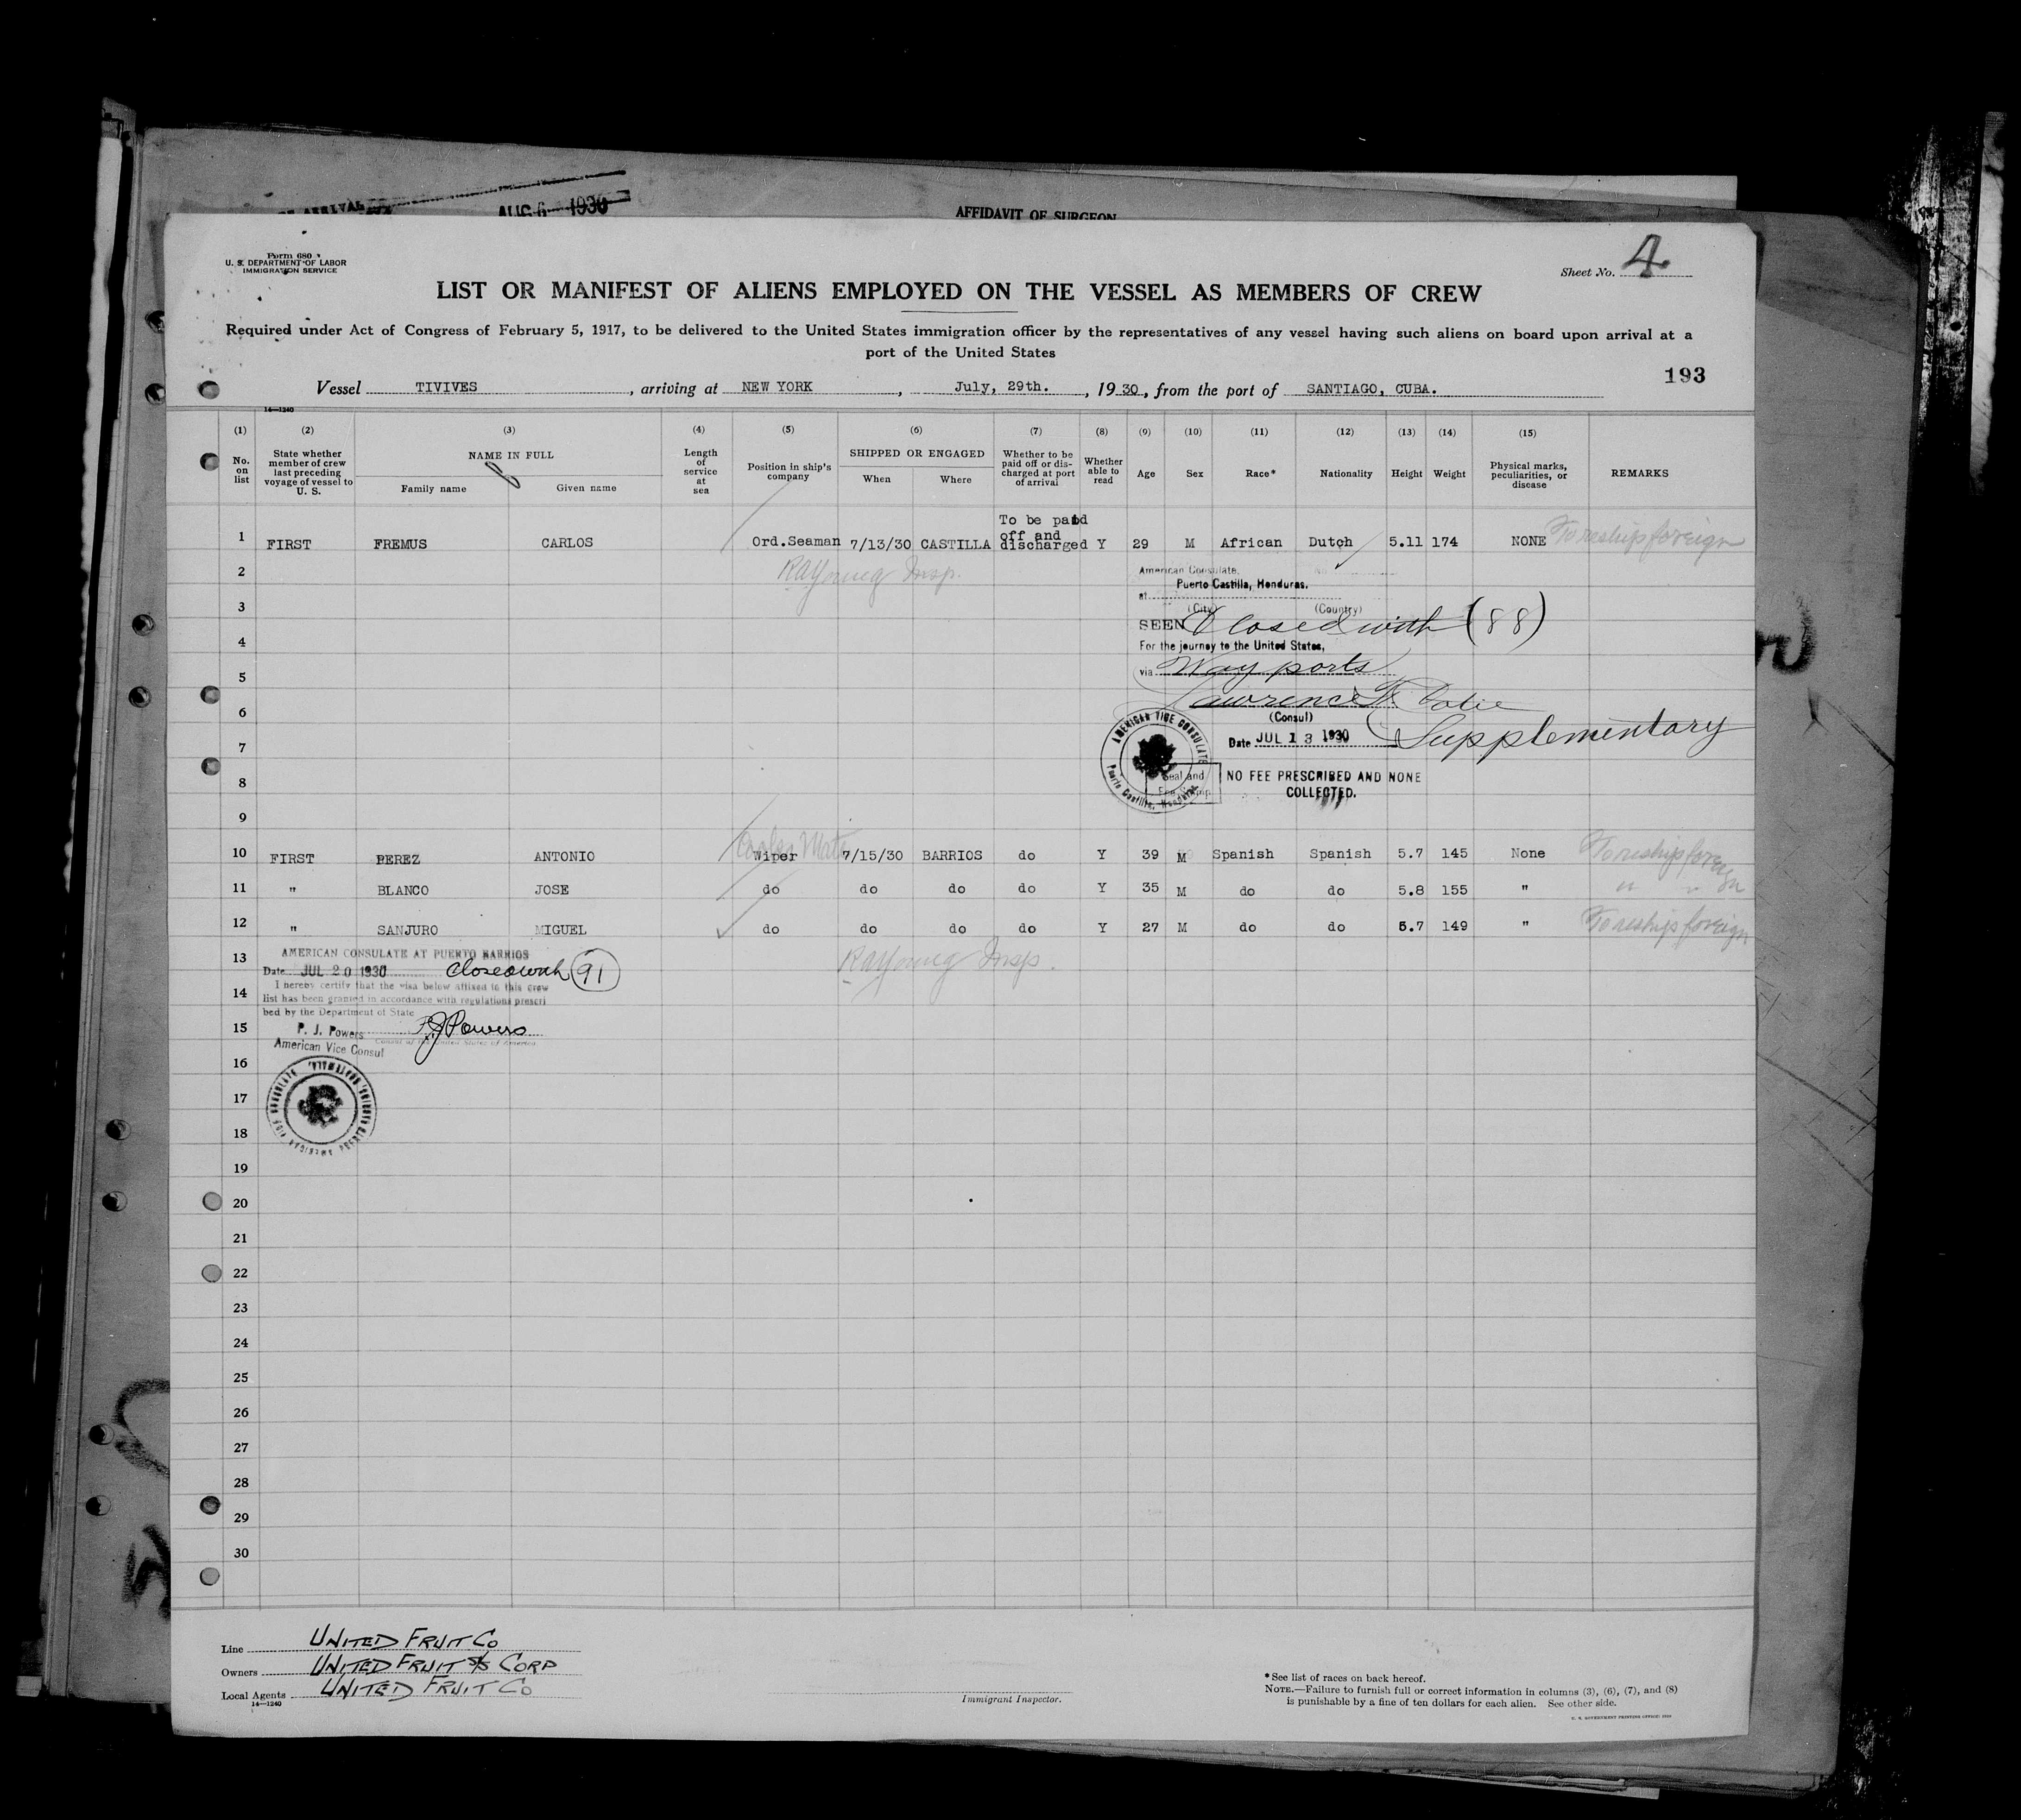 AUG 6 1930
AFFIDAVIT OF SURGEON
Form 680
U. S. DEPARTMENT OF LABOR
IMMIGRATION SERVICE
Sheet No. 4
LIST OR MANIFEST OF ALIENS EMPLOYED ON THE VESSEL AS MEMBERS OF CREW
Required under Act of Congress of February 5, 1917, to be delivered to the United States immigration officer by the representatives of any vessel having such aliens on board upon arrival at a
port of the United States
193
Vessel TIVIVES, arriving at NEW YORK, July, 29th., 1930, from the port of SANTIAGO, CUBA.
14—1240
(1) (2) (3) (4) (5) (6) (7) (8) (9) (10) (11) (12) (13) (14) (15)
No. on list State whether member of crew last preceding voyage of vessel to U. S. NAME IN FULL Family name Given name Length of service at sea Position in ship's company SHIPPED OR ENGAGED When Where Whether to be paid off or discharged at port of arrival Whether able to read Age Sex Race* Nationality Height Weight Physical marks, peculiarities, or disease REMARKS
1 FIRST FREMUS CARLOS Ord.Seaman 7/13/30 CASTILLA To be paid off and discharged Y 29 M African Dutch 5.11 174 NONE To reship foreign
2 RA Young Insp.
American Consulate,
at Puerto Castilla, Honduras.
3
(City) (Country)
SEEN Closed with (88)
4
For the journey to the United States,
5
via Way ports
6
Lawrence F.
(Consul)
7
Date JUL 13 1930 Supplementary
AMERICAN VICE CONSULATE
Puerto Castilla, Honduras
Seal and
8
NO FEE PRESCRIBED AND NONE
COLLECTED.
9
10 FIRST PEREZ ANTONIO Wiper 7/15/30 BARRIOS do Y 39 M Spanish Spanish 5.7 145 None To reship foreign
11 " BLANCO JOSE do do do do Y 35 M do do 5.8 155 " " "
12 " SANJURO MIGUEL do do do do Y 27 M do do 5.7 149 " To reship foreign
13 RA Young Insp.
AMERICAN CONSULATE AT PUERTO BARRIOS
Date JUL 20 1930 closed with 91
I hereby certify that the visa below affixed to this crew
14
list has been granted in accordance with regulations prescri
bed by the Department of State
15
P. J. Powers PJPowers
American Vice Consul Consul of the United States of America
16
17
18
19
20
21
22
23
24
25
26
27
28
29
30
Line UNITED FRUIT CO
Owners UNITED FRUIT S/S CORP
Local Agents UNITED FRUIT CO
14—1240
Immigrant Inspector.
* See list of races on back hereof.
NOTE.—Failure to furnish full or correct information in columns (3), (6), (7), and (8)
is punishable by a fine of ten dollars for each alien. See other side.